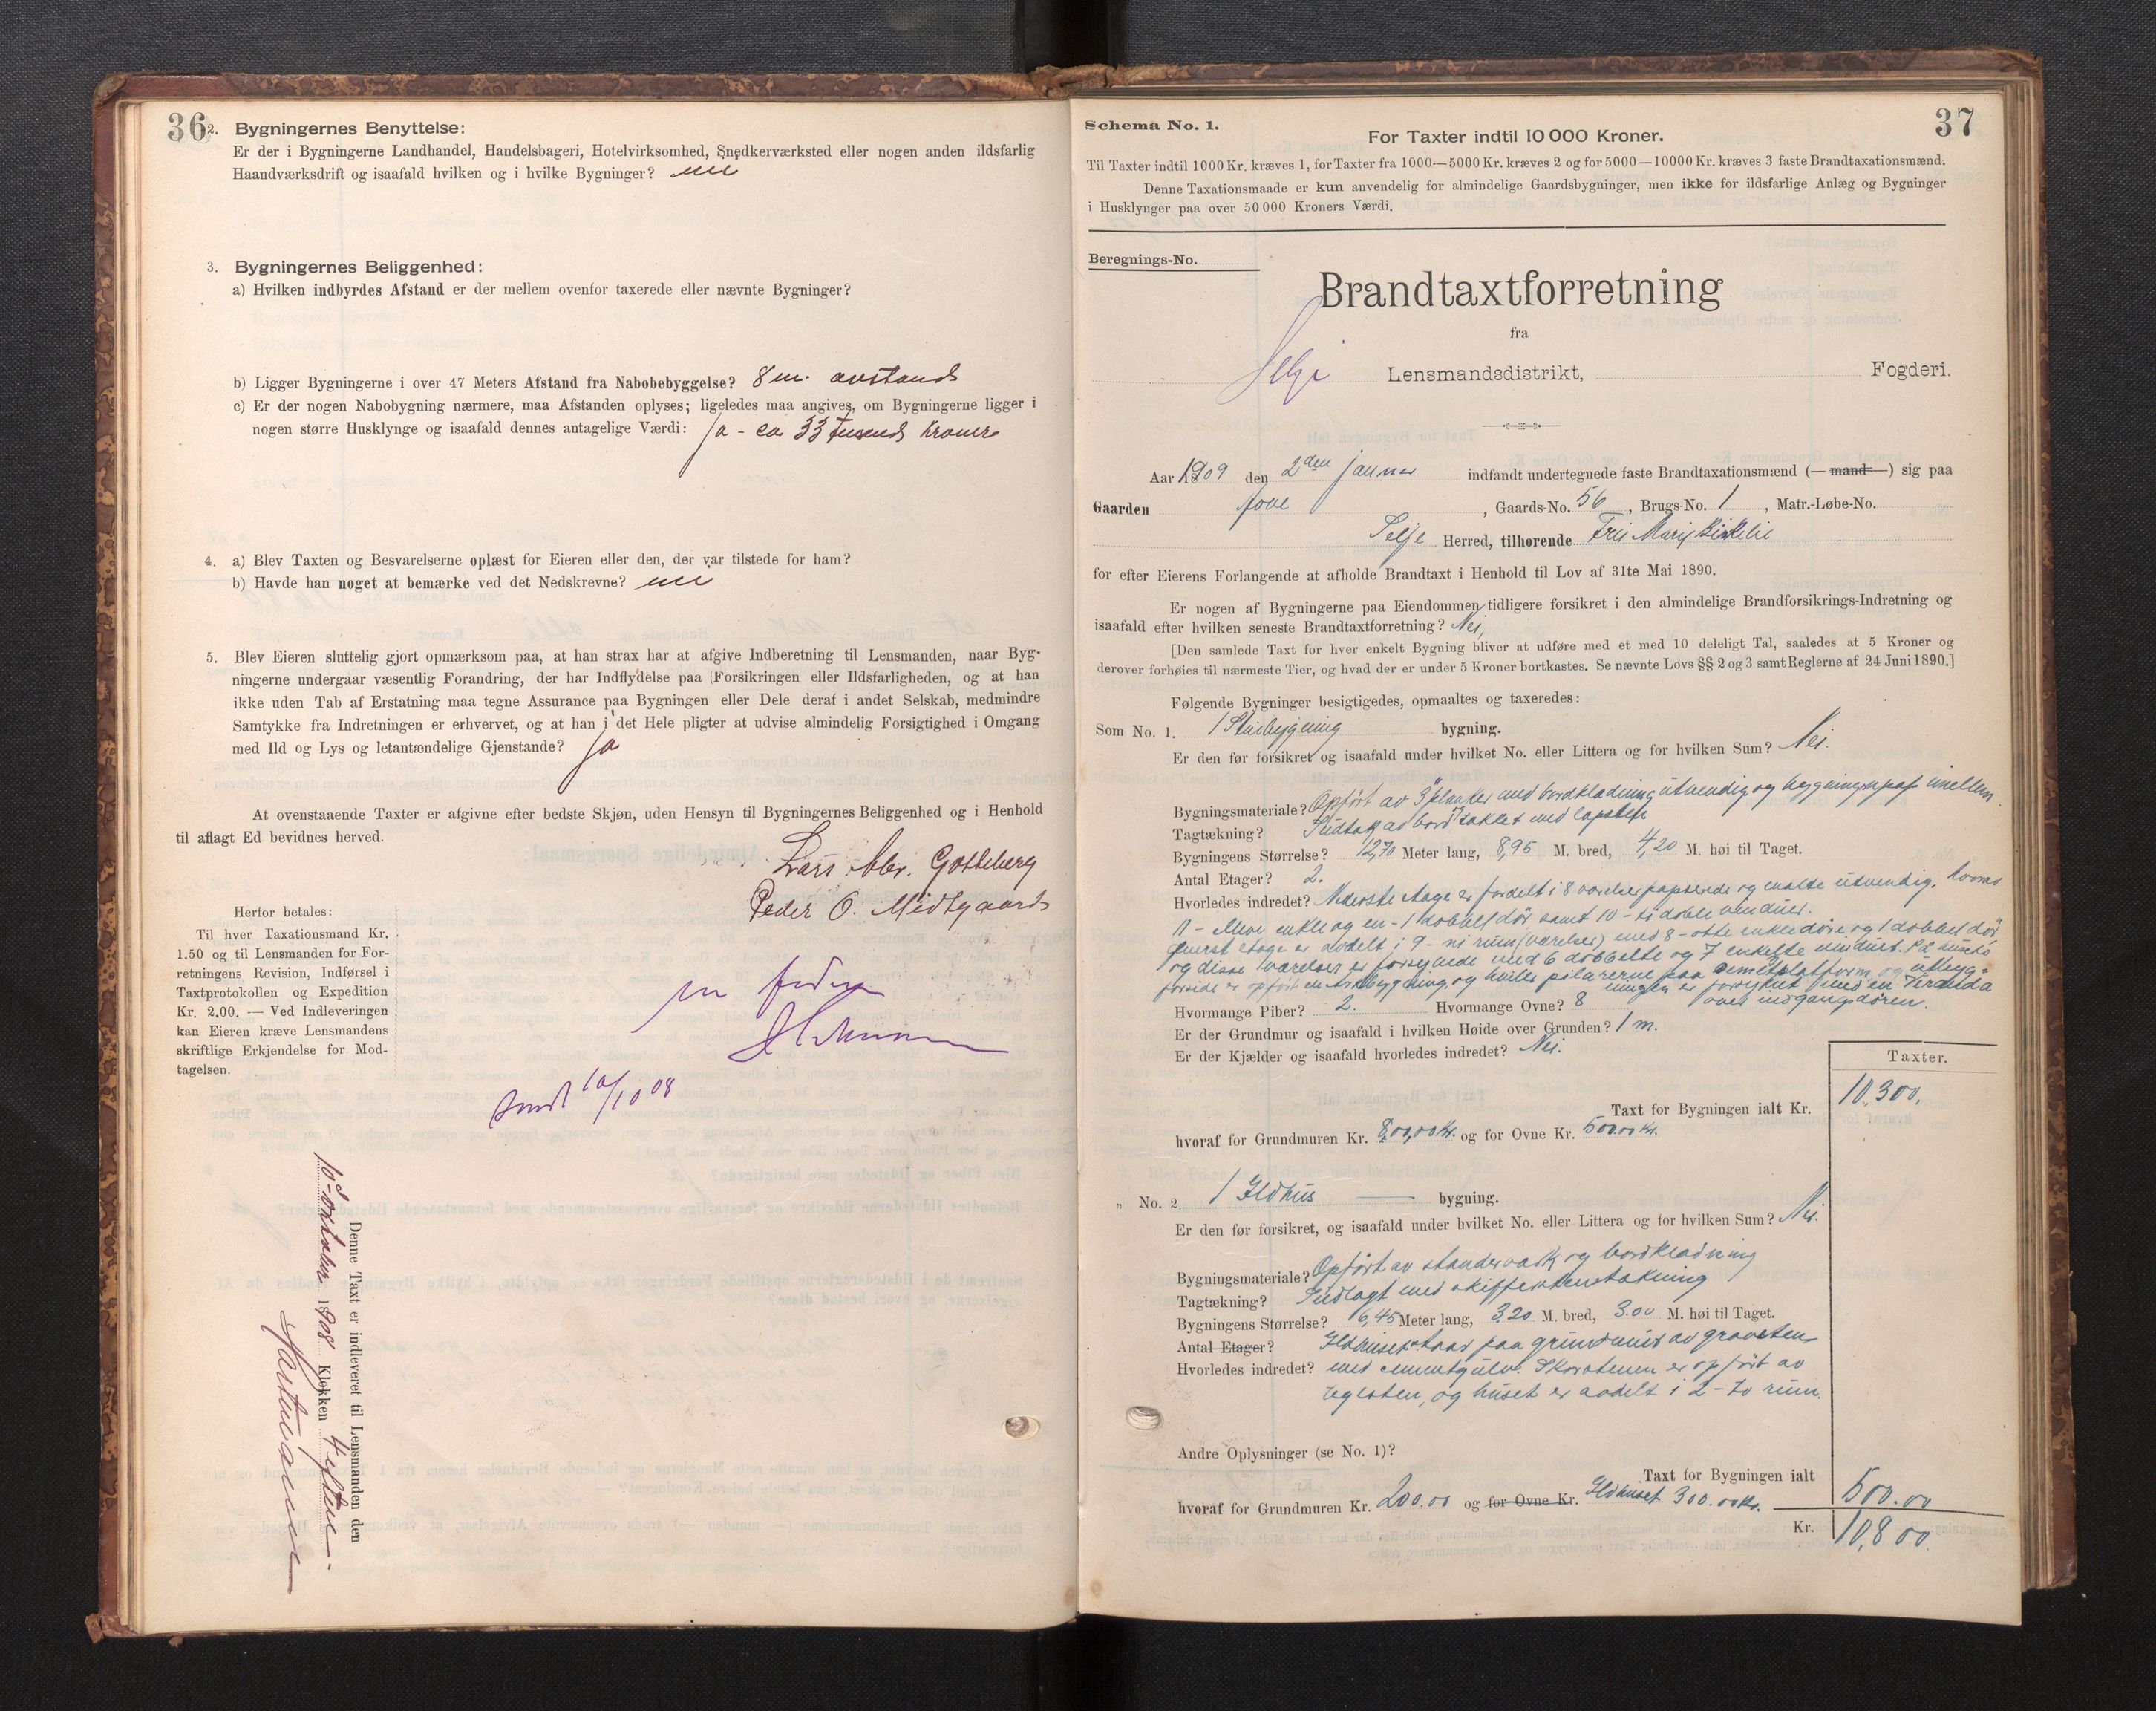 36
2. Bygningernes Benyttelse:
Er der i Bygningerne Landhandel, Handelsbageri, Hotelvirksomhed, Snedkerværksted eller nogen anden ildsfarlig
Haandværksdrift og isaafald hvilken og i hvilke Bygninger?
3. Bygningernes Beliggenhed:
a) Hvilken indbyrdes Afstand er der mellem ovenfor taxerede eller nævnte Bygninger?
b) Ligger Bygningerne i over 47 Meters Afstand fra Nabobebyggelse? 8 m. avstand
c) Er der nogen Nabobygning nærmere, maa Afstanden oplyses; ligeledes maa angives, om Bygningerne ligger i
nogen større Husklynge og isaafald dennes antagelige Værdi: Ja - ca 33 tusend kroner
4. a) Blev Taxten og Besvarelserne oplæst for Eieren eller den, der var tilstede for ham?
b) Havde han noget at bemærke ved det Nedskrevne?
5. Blev Eieren sluttelig gjort opmærksom paa, at han strax har at afgive Indberetning til Lensmanden, naar Byg-
ningerne undergaar væsentlig Forandring, der har Indflydelse paa Forsikringen eller Ildsfarligheden, og at han
ikke uden Tab af Erstatning maa tegne Assurance paa Bygningen eller Dele deraf i andet Selskab, medmindre
Samtykke fra Indretningen er erhvervet, og at han i det Hele pligter at udvise almindelig Forsigtighed i Omgang
med Ild og Lys og letantændelige Gjenstande? Ja
At ovenstaaende Taxter er afgivne efter bedste Skjøn, uden Hensyn til Bygningernes Beliggenhed og i Henhold
til aflagt Ed bevidnes herved.
Lars Abr. Gotteberg
Peder O. Midtgaard
Herfor betales:
Til hver Taxationsmand Kr.
1.50 og til Lensmanden for For-
retningens Revision, Indførsel i
Taxtprotokollen og Expedition
Kr. 2.00. — Ved Indleveringen
kan Eieren kræve Lensmandens
skriftlige Erkjendelse for Mod-
tagelsen.
sendt 10/10 08
Denne Taxt er indleveret til Lensmanden den
10 oktober 1908 Klokken 4 eften
37
Schema No. 1.
For Taxter indtil 10 000 Kroner.
Til Taxter indtil 1000 Kr. kræves 1, for Taxter fra 1000—5000 Kr. kræves 2 og for 5000—10000 Kr. kræves 3 faste Brandtaxationsmænd.
Denne Taxationsmaade er kun anvendelig for almindelige Gaardsbygninger, men ikke for ildsfarlige Anlæg og Bygninger
i Husklynger paa over 50 000 Kroners Værdi.
Beregnings-No.
Brandtaxtforretning
fra
Selje Lensmandsdistrikt, Fogderi.
Aar 1909 den 2den januar indfandt undertegnede faste Brandtaxationsmænd (— mand —) sig paa
Gaarden , Gaards-No. 56, Brugs-No. 1, Matr.-Løbe-No.
Selje Herred, tilhørende
for efter Eierens Forlangende at afholde Brandtaxt i Henhold til Lov af 31te Mai 1890.
Er nogen af Bygningerne paa Eiendommen tidligere forsikret i den almindelige Brandforsikrings-Indretning og
isaafald efter hvilken seneste Brandtaxtforretning? Nei,
[Den samlede Taxt for hver enkelt Bygning bliver at udføre med et med 10 deleligt Tal, saaledes at 5 Kroner og
derover forhøies til nærmeste Tier, og hvad der er under 5 Kroner bortkastes. Se nævnte Lovs §§ 2 og 3 samt Reglerne af 24 Juni 1890.]
Følgende Bygninger besigtigedes, opmaaltes og taxeredes:
Som No. 1. 1 Stuebygning bygning.
Er den før forsikret og isaafald under hvilket No. eller Littera og for hvilken Sum? Nei.
Bygningsmateriale? Opført av 3" planker med bordkladning utvendig og bygningspap imellem.
Tagtækning? av bord takket med
Bygningens Størrelse? 12,70 Meter lang, 8,95 M. bred, 4,20 M. høi til Taget.
Antal Etager? 2.
Hvorledes indredet? Nederste etage er fordelt i 8 værelser papserede og malte utvendig. hvorav
11 - elleve enkle og en - 1 dobbel dør samt 10 - ti doble vinduer.
etage er avdelt i 9 - ni rum (værelser) med 8 - otte enkle døre og 1 dobbel dør
og disse værelser er forsynede med 6 dobbelte og 7 enkelte vinduer. På husets
forside er opført en Arkbygning, og hviler pilarerne paa cementplatform og utbyg-
ningen er forsynet med en Veranda
over indgangsdøren.
Hvormange Piber? 2. Hvormange Ovne? 8
Er der Grundmur og isaafald i hvilken Høide over Grunden? 1 m.
Er der Kjælder og isaafald hvorledes indredet? Nei.
Taxter.
Taxt for Bygningen ialt Kr. 10.300,
hvoraf for Grundmuren Kr. 800,00 Kr. og for Ovne Kr. 500.00 Kr.
„ No. 2 1 Ildhus bygning.
Er den før forsikret, og isaafald under hvilket No. eller Littera og for hvilken Sum? Nei.
Bygningsmateriale? Opført av standervark og bordkladning
Tagtækning? med skiffersten takning
Bygningens Størrelse? 6,45 Meter lang, 3,20 M. bred, 3.00 M. høi til Taget.
Antal Etager? Ildhuset staar paa grundmur av graasten
Hvorledes indredet? med cementgulv. Skorstenen er opført av
teglsten, og huset er avdelt i 2 - to rum.
Andre Oplysninger (se No. 1)?
Taxt for Bygningen ialt 500.00
hvoraf for Grundmuren Kr. 200.00 og for Ovne Kr. Ildhuset 300.00 Kr.
Kr. 10,800